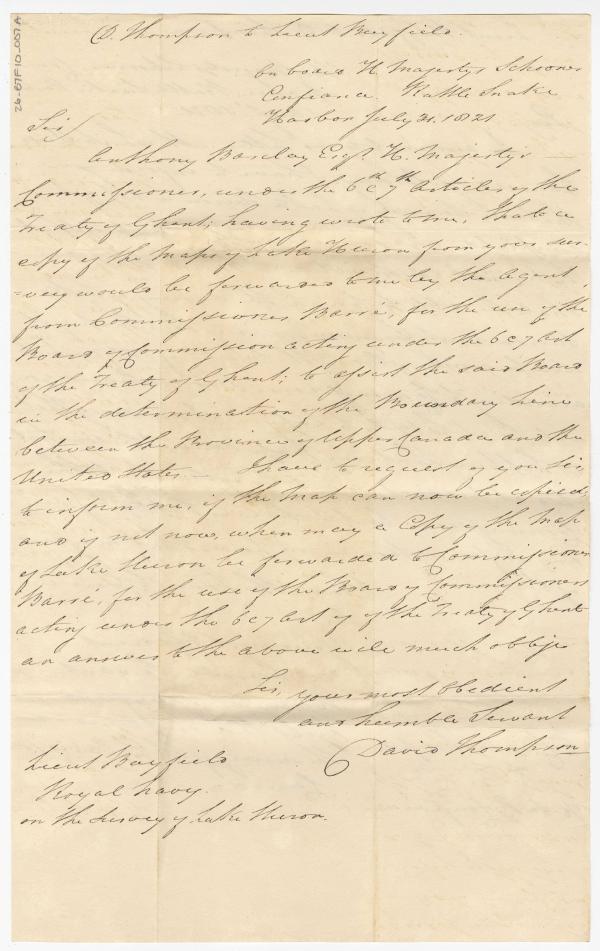 26-87F10-007A
D. Thompson to Lieut Bayfield.
On board H. Majestys Schooner
Confiance. Rattle Snake
Harbor July 31. 1821
Sir/
Anthony Barclay Esqr. H. Majesty's
Commissioner, under the 6th & 7th articles of the
Treaty of Ghent; having wrote to me, That a
copy of the Maps of Lake Huron from your sur-
=vey would be forwarded to me by the Agent,
from Commissioner Barré, for the use of the
Board of Commission acting under the 6 & 7 Art
of the Treaty of Ghent; to assist the said Board
in the determination of the Boundary Line
between the Province of Upper Canada and the
United States — I have to request of you Sir,
to inform me, if the Map can now be copied;
and if not now, when may a Copy of the Map
of Lake Huron be forwarded to Commissioner
Barré, for the use of the Board of Commissioners
acting under the 6 & 7 art of of the Treaty of Ghent
an answer to the above will much oblige
Sir, your most obedient
and humble Servant
David Thompson
Lieut Bayfield
Royal Navy.
on the Survey of Lake Huron.